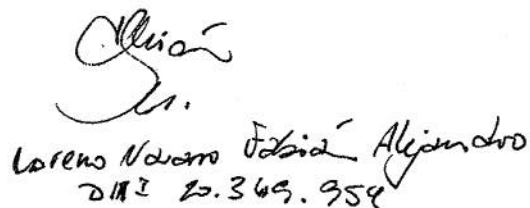 Loreno Navarro Fabián Alejandro
DNI 20.349.954